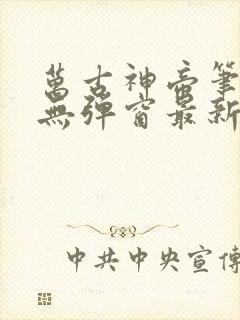 萬古神帝筆
無彈窗最新
中共中央宣傳